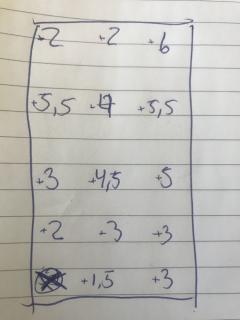 +2 +2 +6
+5,5 +4 +5,5
+3 +4,5 +5
+2 +3 +3
+1,5 +3